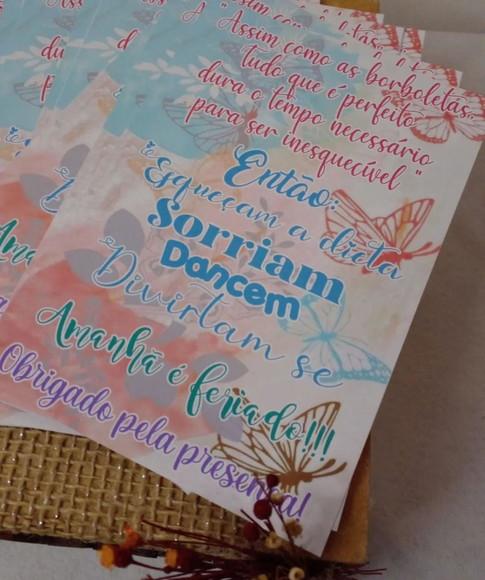 "Assim como as borboletas,
Tudo que é perfeito
dura o tempo necessário
para ser inesquecível"
Então:
Esqueçam a dieta
Sorriam
Dancem
Divirtam se
Amanhã é feriado!!!
Obrigado pela presença!